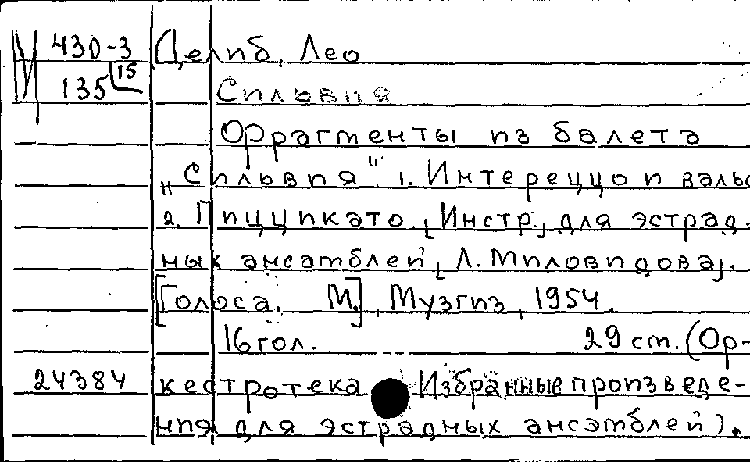 М 430-3 Делиб, Лео
135 15
Сильвия
Фрагменты из балета
„Сильвия" 1. Интереццо и вальс
2. Пиццикато. [Инстр] для эстрад-
ных ансамблей [Л. Миловидова].
[Голоса. М.], Музгиз, 1954.
16 гол. 29 см. (Ор-
24384 кестротека Избранные произведе-
ния для эстрадных ансамблей).